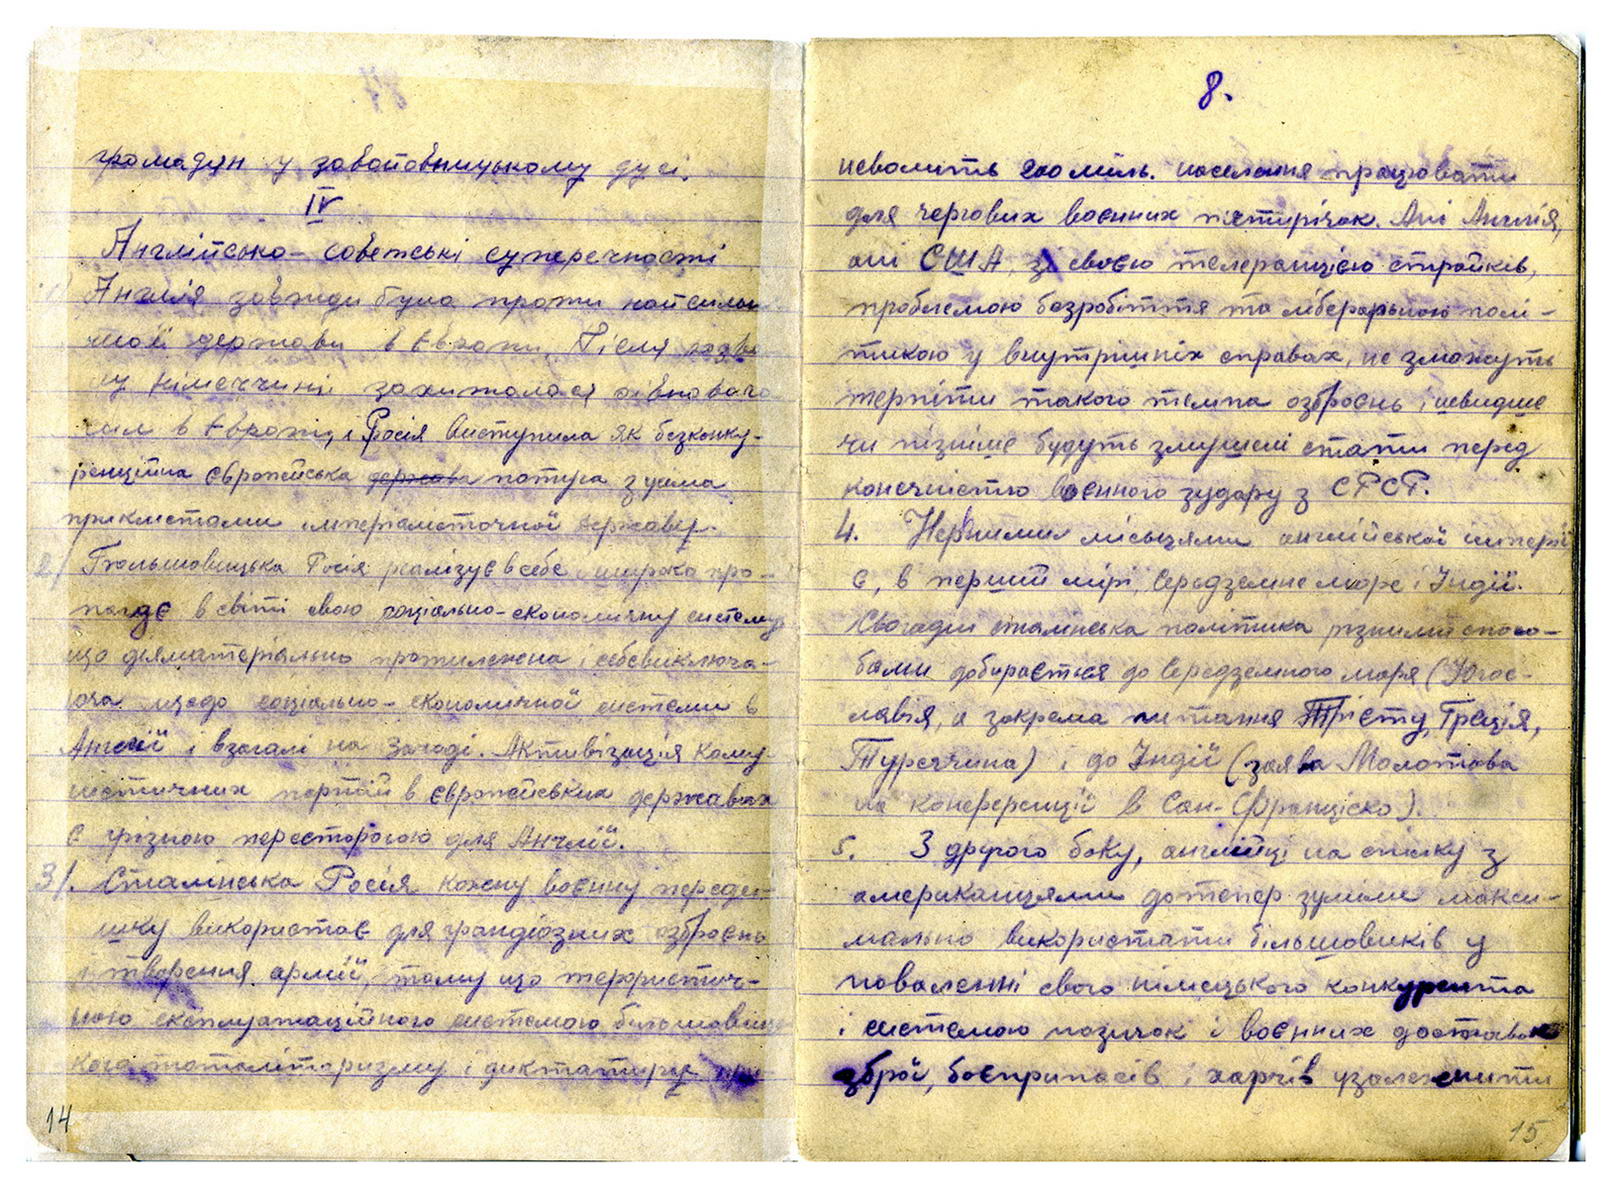 громадян у завойовницькому дусі.
IV
Англійсько-совєтські суперечності
Англія завжди була проти найсиль-
шої держави в Европі. Після розва
лу Німеччини захиталася рівновага
сил в Европі, і Росія виступила як безконку-
ренційна європейська держава потуга з усіма
прикметами імперіялістичної держави.
2/ Большовицька Росія реалізує в себе і широко про-
пагує в світі свою соціяльно-економічну систему
що діяметрально протилежна і себевиключа-
юча щодо соціяльно-економічної системи в
Англії і взагалі на Заході. Активізація кому-
ністичних партій в європейських державах
є грізною пересторогою для Англії.
3/. Сталінська Росія кожну воєнну переди-
шку використає для грандіозних озброєнь
і творення армії, тому що терористич-
ною експлуатаційною системою большовиць
кого тоталітаризму і диктатури
14
8.
неволить 200 міль. населення працювати
для чергових воєнних пятирічок. Ані Англія,
ані США, зі своєю толеранцією страйків,
проблемою безробіття та ліберальною полі-
тикою у внутрішніх справах, не зможуть
терпіти такого темпа озброєнь і швидше
чи пізніше будуть змушені стати перед
конечністю воєнного зудару з СРСР.
4. Нервними місцями англійської імперії
є, в першій мірі, Середземне море і Індії.
Сталінська політика різними спосо-
бами добирається до Середземного моря (Югос-
лавія, а зокрема питання Трієсту, Греція,
Туреччина) і до Індії (заява Молотова
на конференції в Сан-Франціско).
5. З другого боку, англійці на спілку з
американцями дотепер зуміли макси-
мально використати більшовиків у
поваленні свого німецького конкурента
і системою позичок і воєнних доставок
зброї, боєприпасів і харчів узалежнити
15